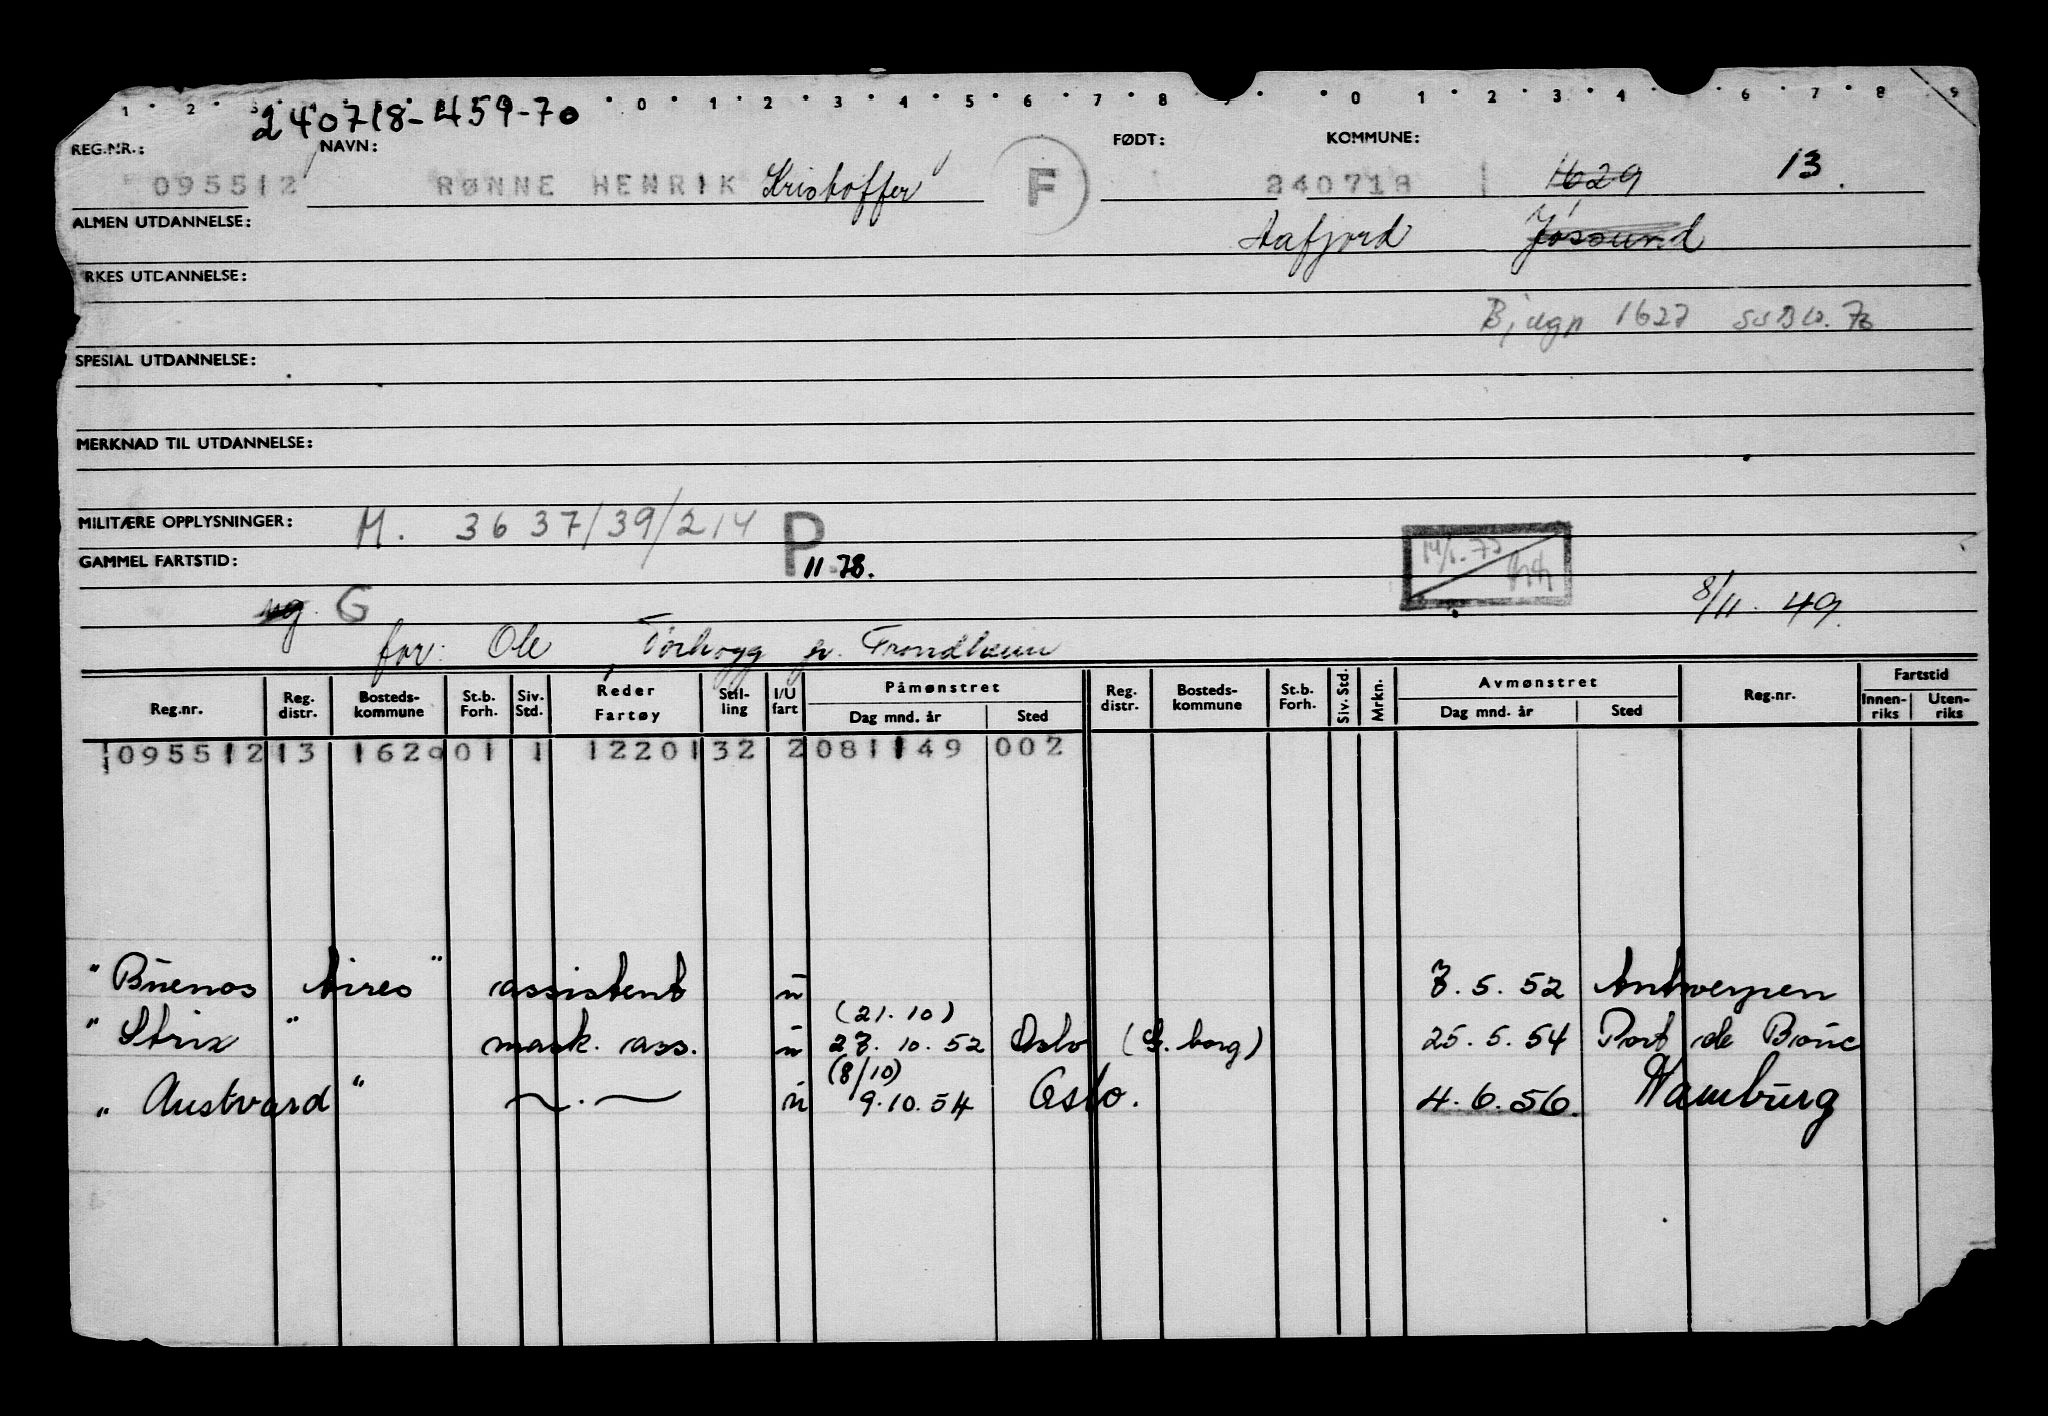 1 2 3 4 5 6 7 8 9 0 1 2 3 4 5 6 7 8 9 0 1 2 3 4 5 6 7 8 9
240718-459-70
REG.NR.: NAVN: FØDT: KOMMUNE:
095512 RØNNE HENRIK Kristoffer F 240718 1629 13.
ALMEN UTDANNELSE: Aafjord Jøssund
RKES UTDANNELSE:
Bjugn 1627
SPESIAL UTDANNELSE:
MERKNAD TIL UTDANNELSE:
MILITÆRE OPPLYSNINGER: M. 3637/39/214 P
GAMMEL FARTSTID: 11.78.
ug. G 8/11. 49.
far: Ole, Torhogg pr. Trondheim
Reg.nr. Reg. distr. Bosteds-kommune St.b. Forh. Siv. Std. Reder Fartøy Stil-ling I/U fart Påmønstret Dag mnd. år Sted Reg. distr. Bosteds-kommune St.b. Forh. Siv. Std. Mrkn. Avmønstret Dag mnd. år Sted Reg.nr. Fartstid Innen-riks Uten-riks
095512 13 1629 01 1 12201 32 2 081149 002
"Buenos Aires" assistent u 7.5.52 Antwerpen
(21.10)
"Strix" mask. ass. u 27.10.52 Oslo (G.borg) 25.5.54 Port de Bouc
(8/10)
"Austvard" —.— u 9.10.54 Oslo. 4.6.56. Hamburg